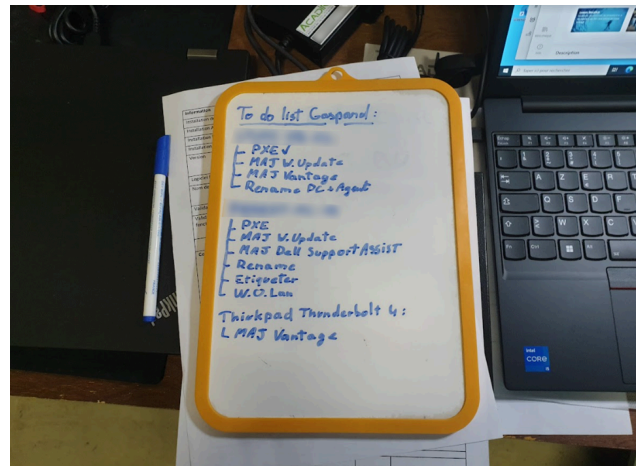 To do list Gaspard :
PXE √
MAJ W.Update
MAJ Vantage
Rename PC + Agent
PXE
MAJ W.Update
MAJ Dell Support Assist
Rename
Etiqueter
W.O.Lan
Thinkpad Thunderbolt 4 :
MAJ Vantage
intel
CORE
Description